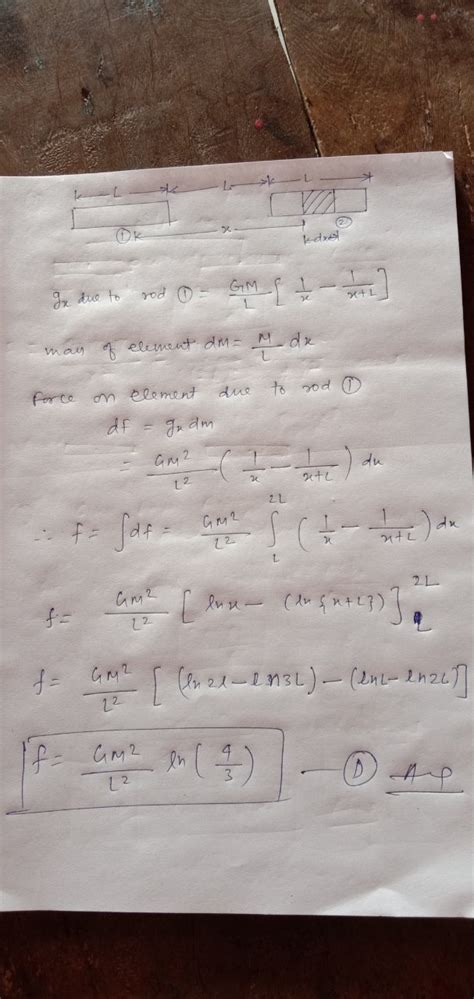 L L L
① x dx ②
gx due to rod ① = GM/L [ 1/x − 1/(x+L) ]
mass of element dM = M/L dx
Force on element due to rod ①
df = gx dm
= GM²/L² ( 1/x − 1/(x+L) ) dx
∴ f = ∫df = GM²/L² ∫_L^{2L} ( 1/x − 1/(x+L) ) dx
f = GM²/L² [ lnx − (ln{x+L}) ]_L^{2L}
f = GM²/L² [ (ln2L − ln3L) − (lnL − ln2L) ]
f = GM²/L² ln( 4/3 ) — Ⓓ Ans